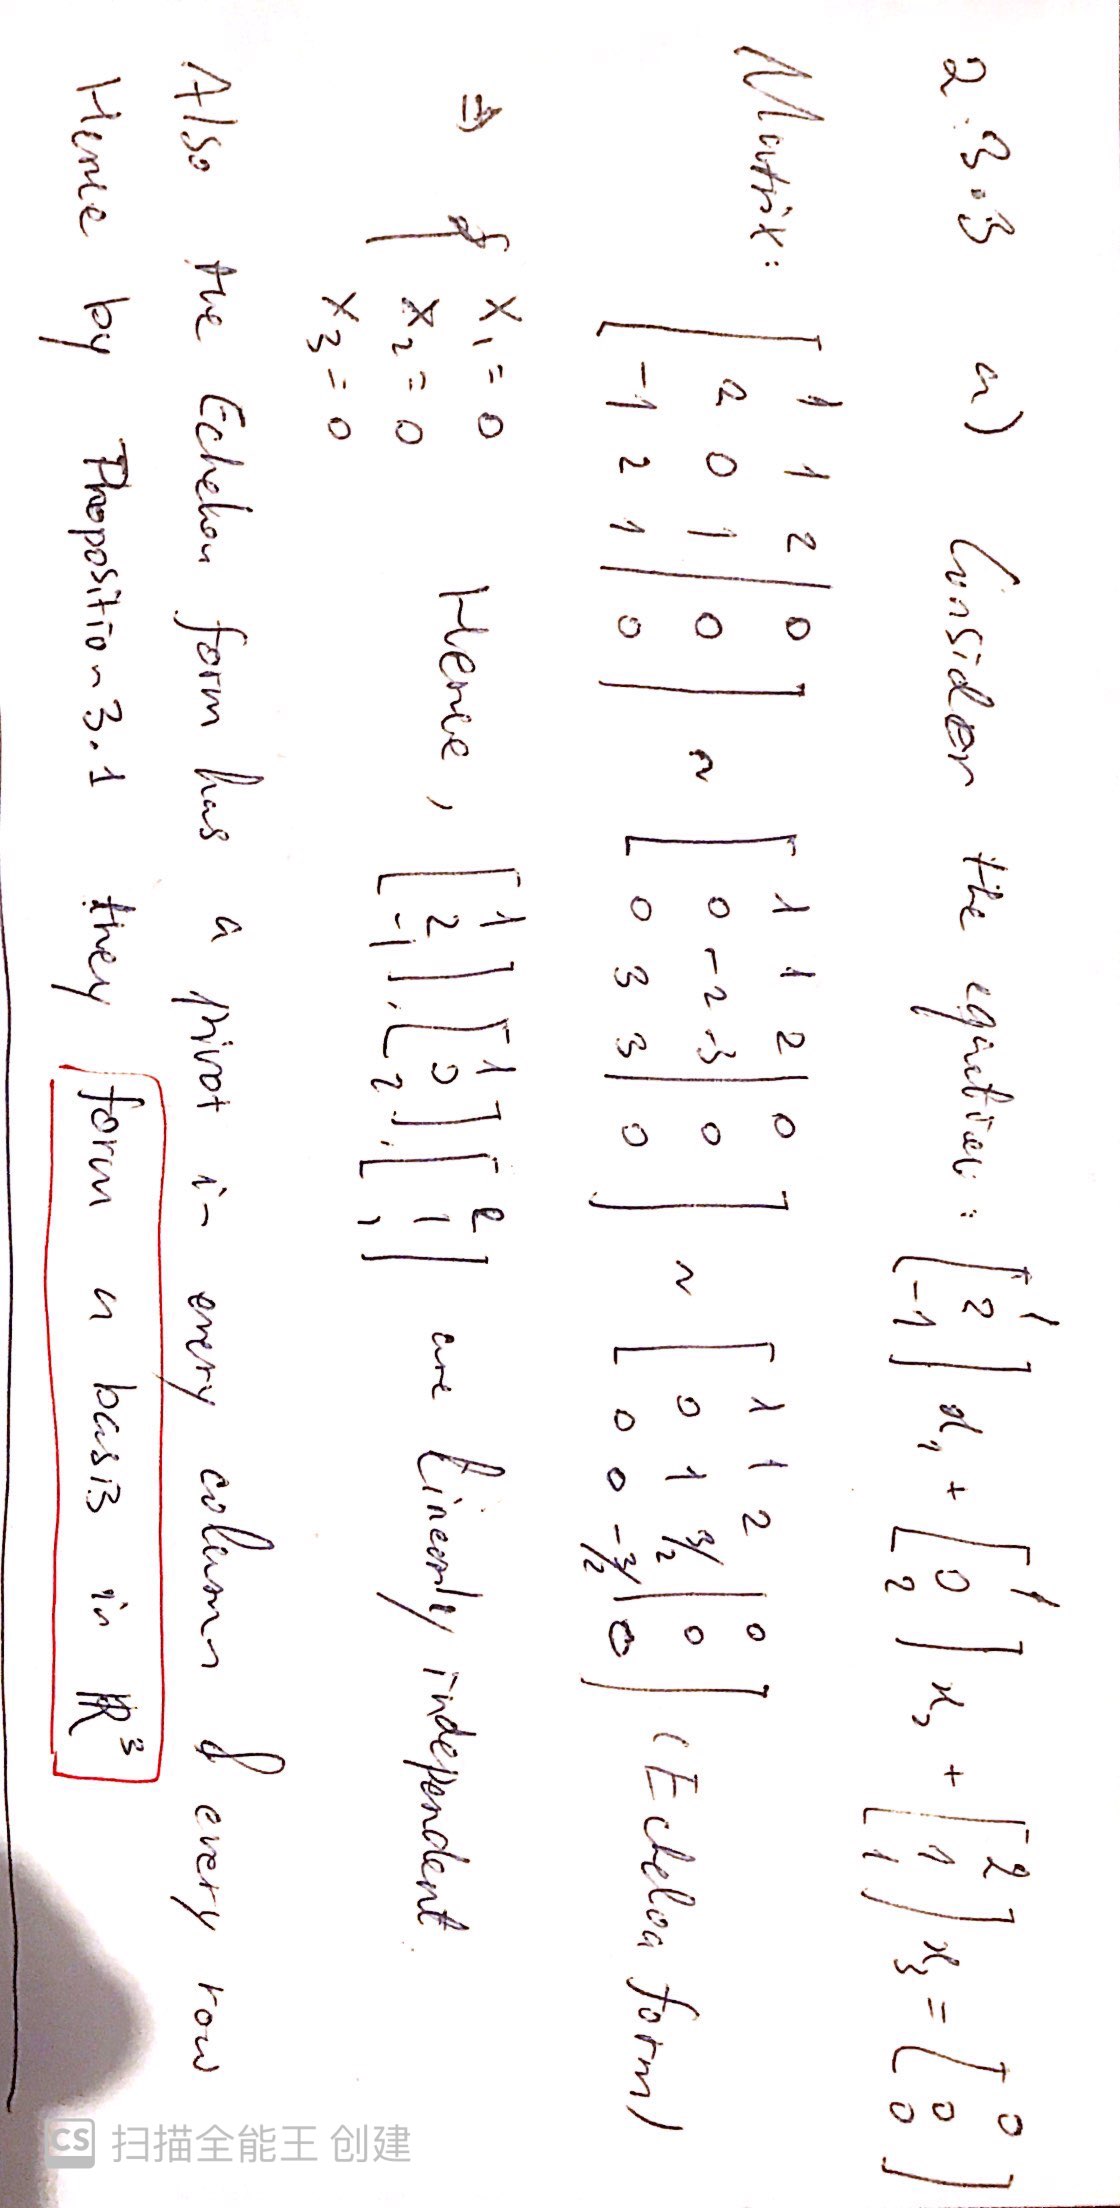 2.3.3 a) Consider the equation: [1 2 -1] x₁ + [1 0 2] x₂ + [2 1 1] x₃ = [0 0 0]
Matrix: [1 1 2 | 0
2 0 1 | 0
-1 2 1 | 0] ~ [1 1 2 | 0
0 -2 -3 | 0
0 3 3 | 0] ~ [1 1 2 | 0
0 1 3/2 | 0
0 0 -3/2 | 0] (Echelon form)
⇒ { x₁ = 0
x₂ = 0
x₃ = 0
Hence, [1 2 -1], [1 0 2], [2 1 1] are linearly independent.
Also the Echelon form has a pivot in every column & every row
Hence by Proposition 3.1 they form a basis in ℝ³
CS 扫描全能王 创建